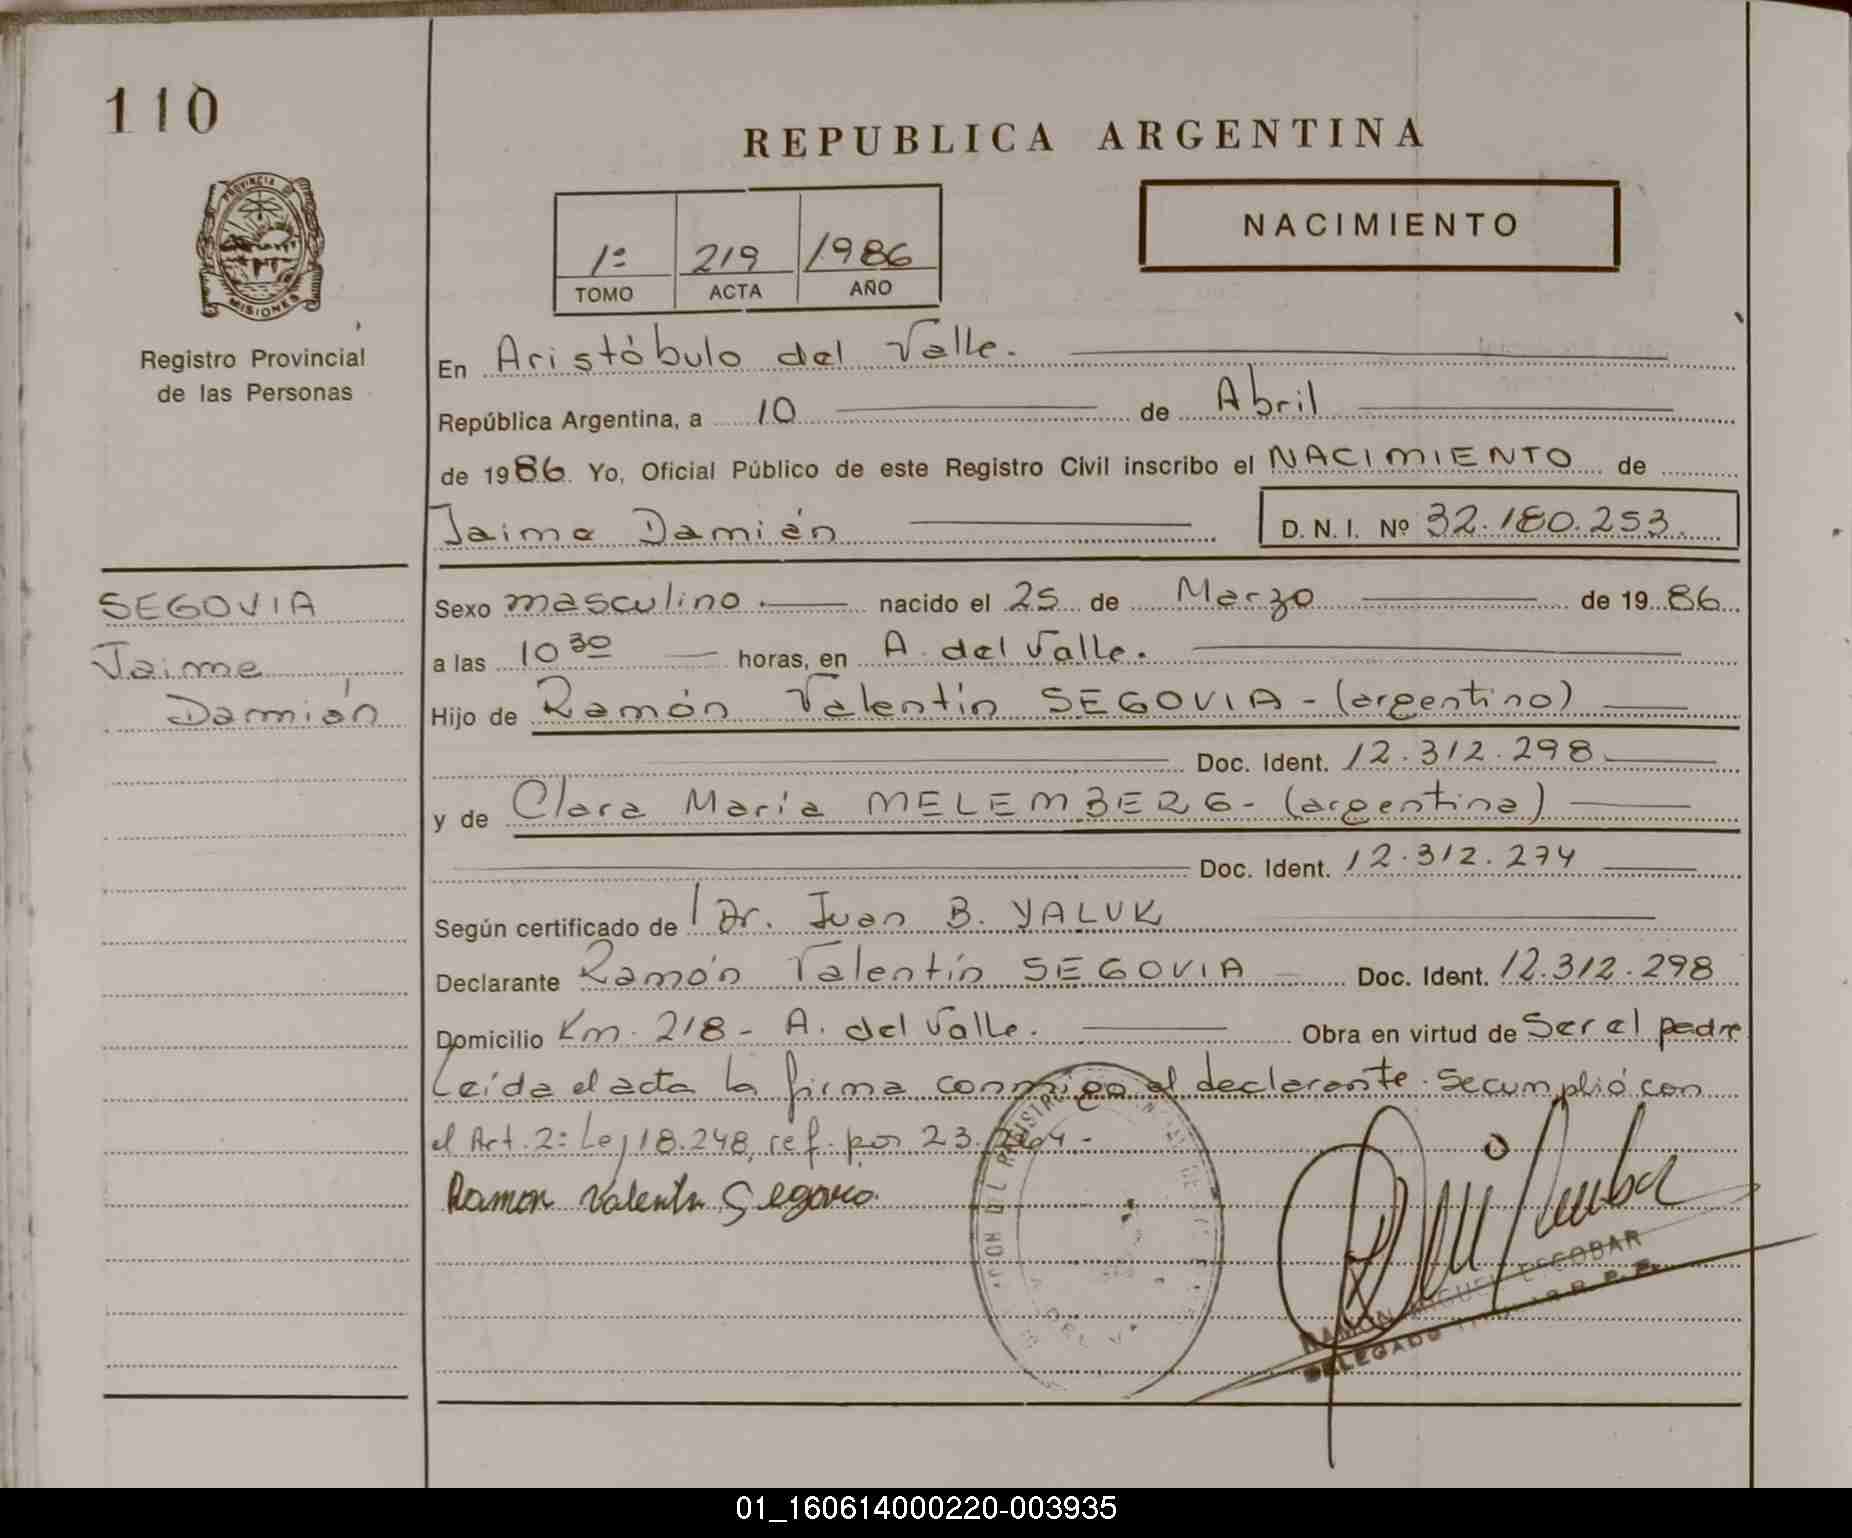 110
REPUBLICA ARGENTINA
NACIMIENTO
1º 219 1986
TOMO ACTA AÑO
PROVINCIA DE
MISIONES
Registro Provincial
de las Personas
En Aristóbulo del Valle.
República Argentina, a 10 de Abril
de 1986. Yo, Oficial Público de este Registro Civil inscribo el NACIMIENTO de
Jaime Damián D. N. I. Nº 32.180.253.
SEGOVIA
Jaime
Damián
Sexo masculino. nacido el 25 de Marzo de 1986
a las 10 30 horas, en A. del Valle.
Hijo de Ramón Valentín SEGOVIA - (argentino)
Doc. Ident. 12.312.298
y de Clara María MELEMBERG - (argentina)
Doc. Ident. 12.312.274
Según certificado de Dr. Juan B. YALUK
Declarante Ramón Valentín SEGOVIA Doc. Ident. 12.312.298
Domicilio Km. 218 - A. del Valle. Obra en virtud de Ser el padre
Leída el acta la firma conmigo el declarante. Se cumplió con
el Art. 2º Ley 18.248, ref. por 23.264 -
Ramon Valentin Segovia.
RAMON MIGUEL ESCOBAR
DELEGADO R. P. P.
01_160614000220-003935